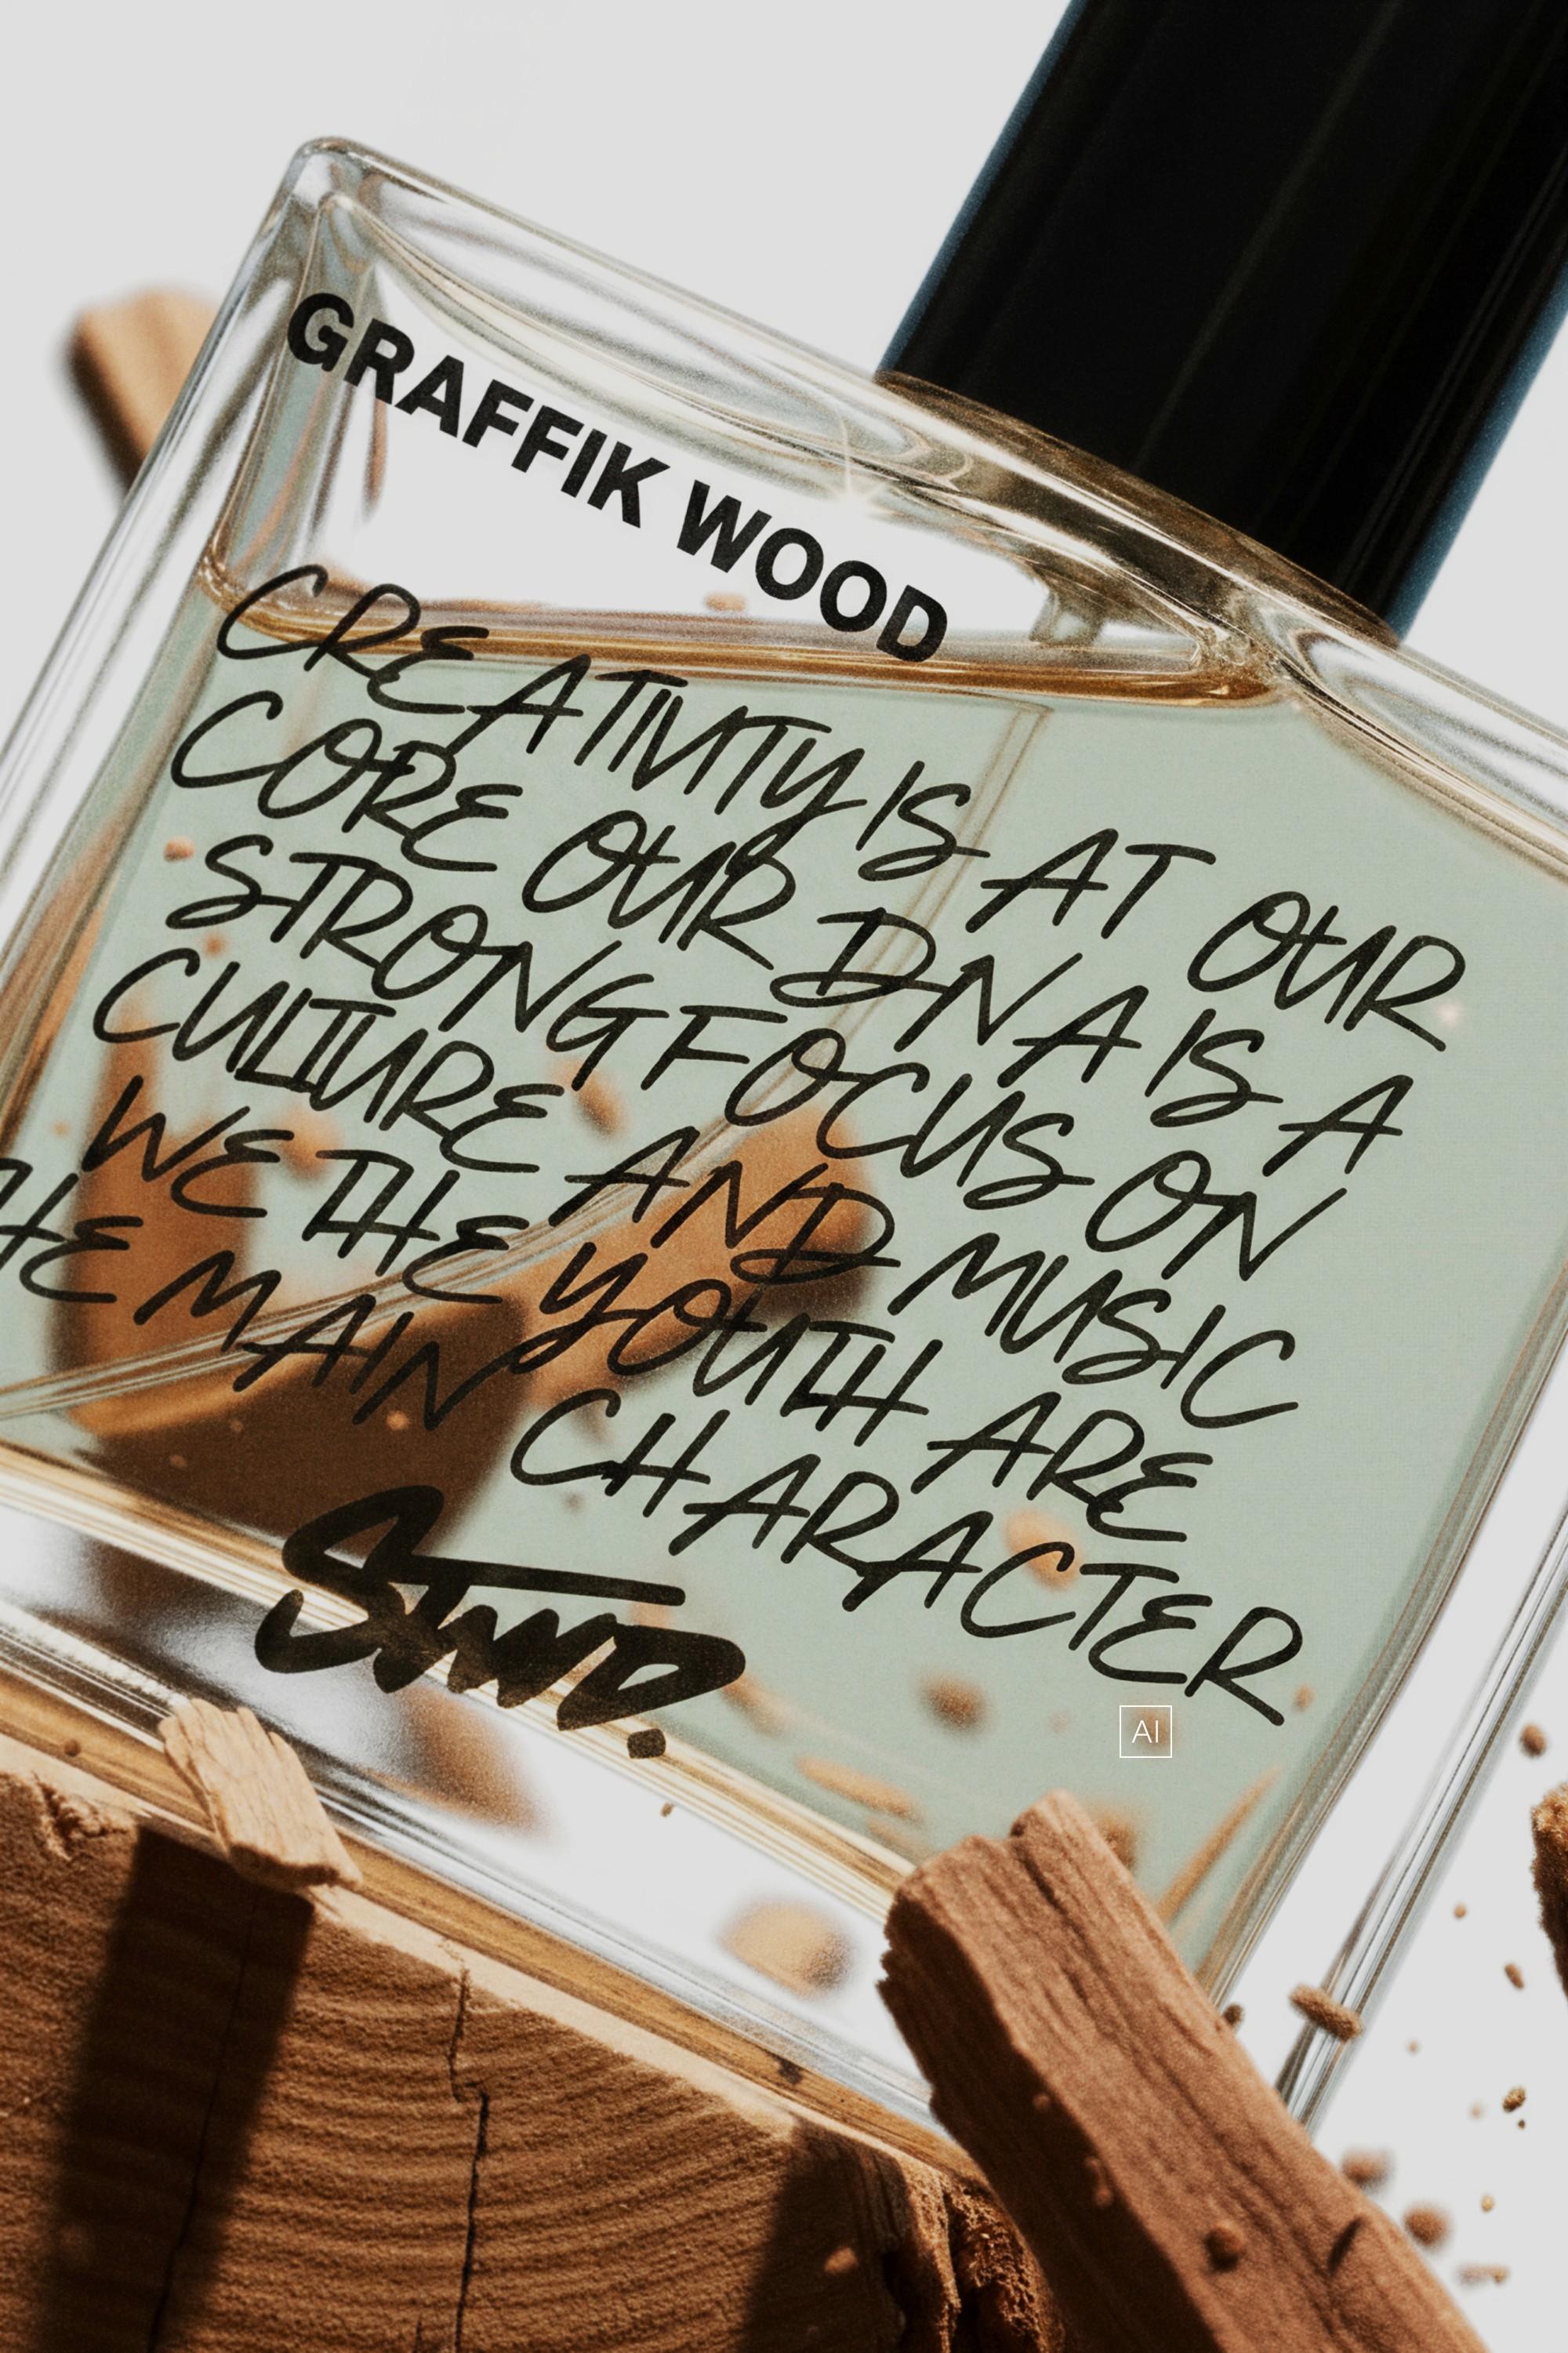 GRAFFIK WOOD
CREATIVITY IS AT OUR
CORE OUR DNA IS A
STRONG FOCUS ON
CULTURE AND MUSIC
WE THE YOUTH ARE
THE MAIN CHARACTER
STWD.
AI